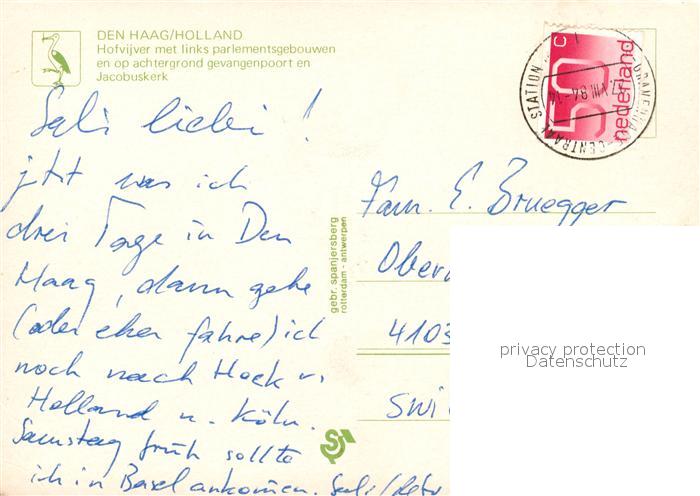 DEN HAAG/HOLLAND
Hofvijver met links parlementsgebouwen
en op achtergrond gevangenpoort en
Jacobuskerk
Sali liebi !
jtzt was ich
drei Tage in Den
Haag, dann gehe
(oder eher fahre) ich
noch nach Hoek v.
Holland u. Köln.
Samstag früh sollte
ich in Basel ankommen. Sali
gebr. spanjersberg
rotterdam - antwerpen
C
50
nederland
GRAVENHAGE-CENTRAAL STATION
VIII 84-14
Fam. E. Bruegger
Ober
4103
SWI
privacy protection
Datenschutz